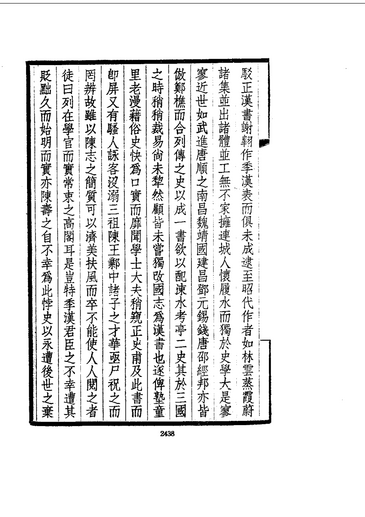 駁正漢書謝翱作季漢表而俱未成逮至昭代作者如林雲蒸霞蔚
諸集並出諸體並工無不家擁連城人懷履水而獨於史學大是寥
寥近世如武進唐順之南昌魏靖國建昌鄧元錫錢唐邵經邦亦皆
倣鄭樵而合列傳之史以成一書欲以配涑水考亭二史其於三國
之時稍稍裁易尙未犂然顧皆未嘗獨改國志為漢書也遂俾塾童
里老漫藉俗史快為口實而靡聞學士大夫稍窺正史甫及此書而
卽屏又有騷人詠客沒溺三祖陳王鄴中諸子之才華亟尸祝之而
罔辨故雖以陳志之簡質可以濟美扶風而卒不能使人人閱之者
徒曰列在學官而實常束之高閣耳是豈特季漢君臣之不幸遭其
貶黜久而始明而實亦陳壽之自不幸為此悖史以永遭後世之棄
2438